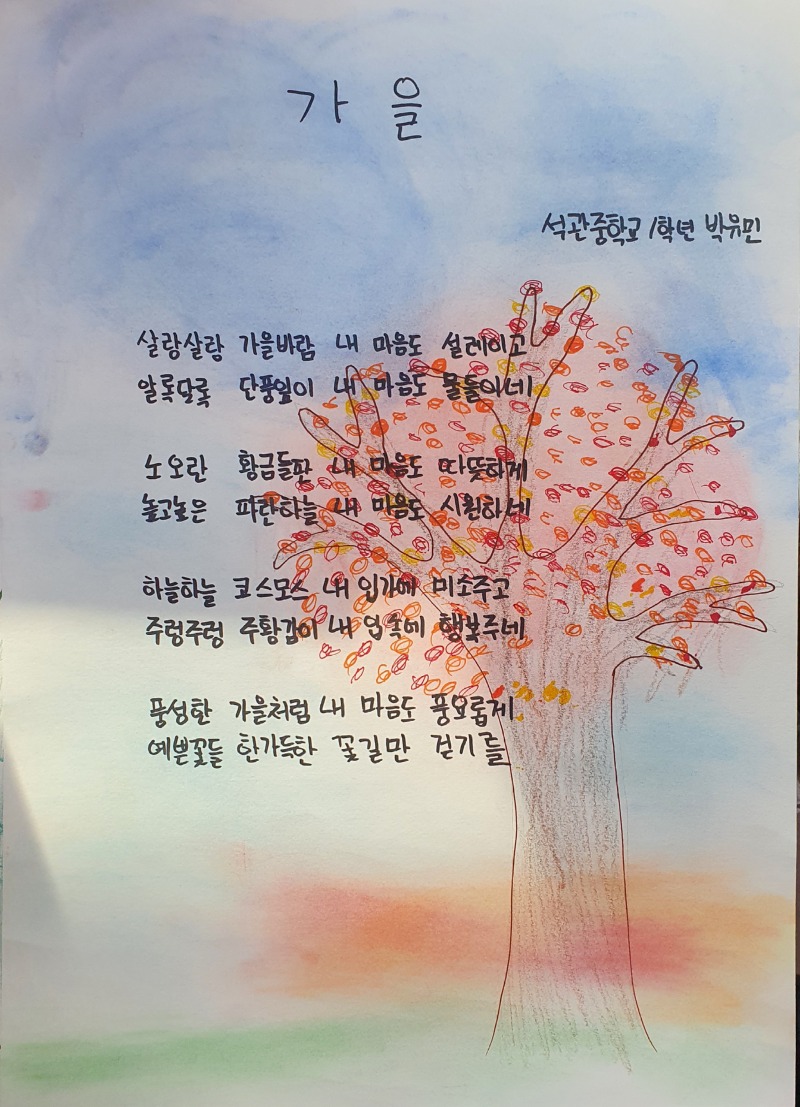 가을
석관중학교 1학년 박유민
살랑살랑 가을바람 내 마음도 설레이고
알록달록 단풍잎이 내 마음도 물들이네
노오란 황금들판 내 마음도 따뜻하게
높고높은 파란하늘 내 마음도 시원하네
하늘하늘 코스모스 내 입가에 미소주고
주렁주렁 주황감이 내 입속에 행복주네
풍성한 가을처럼 내 마음도 풍요롭게
예쁜꽃들 한가득한 꽃길만 걷기를